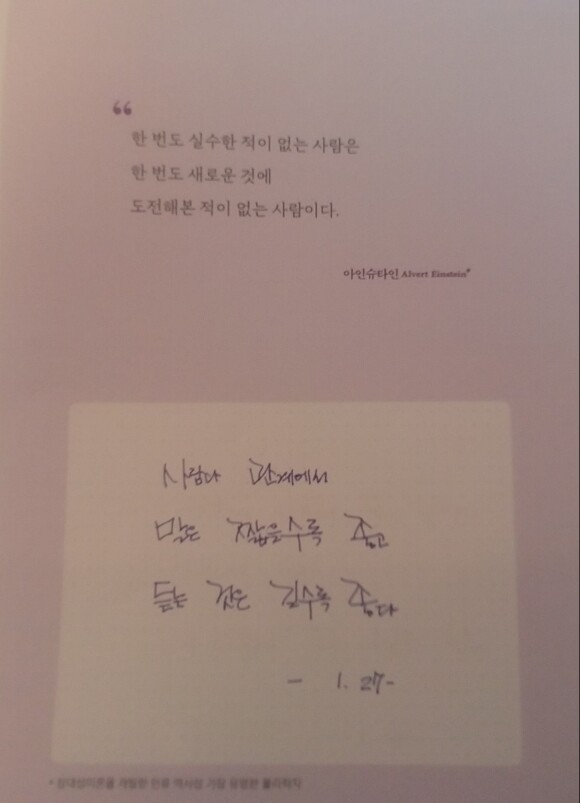 “
한 번도 실수한 적이 없는 사람은
한 번도 새로운 것에
도전해본 적이 없는 사람이다.
아인슈타인 Alvert Einstein*
사람과 관계에서
말은 짧을수록 좋고
듣는 것은 길수록 좋다
- 1. 27-
* 상대성이론을 개발한 인류 역사상 가장 유명한 물리학자